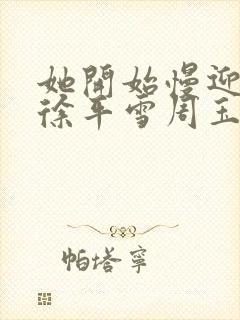 她開始慢迎
徐年雪周玉
帕塔寧